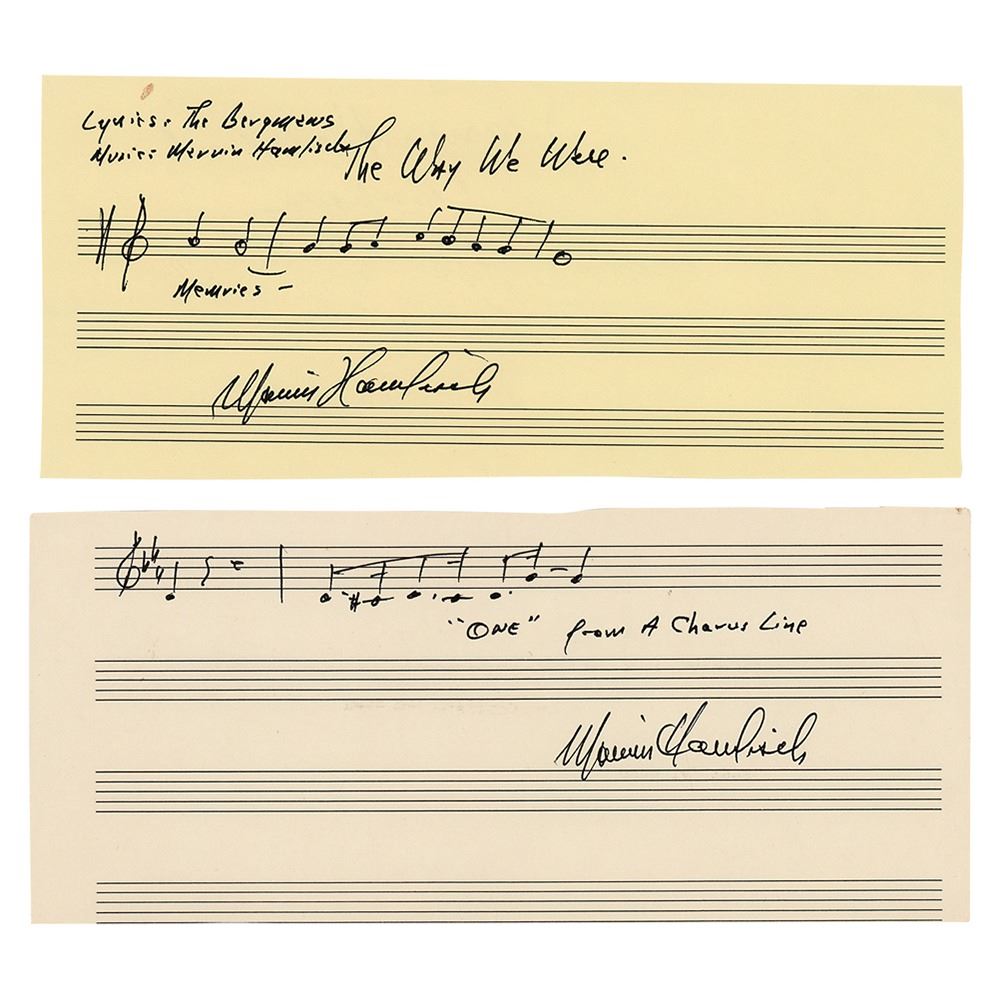 Lyrics: The Bergmans
Music: Marvin Hamlisch
The Way We Were.
Memories –
Marvin Hamlisch
"ONE" from A Chorus Line
Marvin Hamlisch